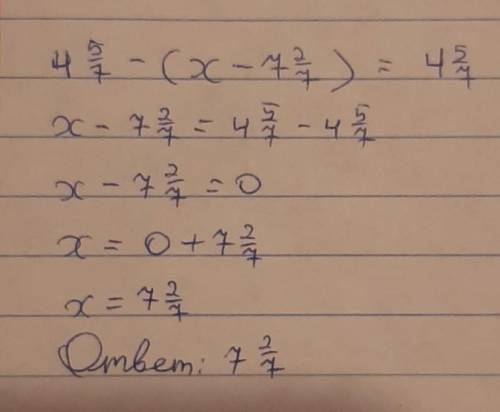 4 5/7 - (x - 7 2/7) = 4 5/7
x - 7 2/7 = 4 5/7 - 4 5/7
x - 7 2/7 = 0
x = 0 + 7 2/7
x = 7 2/7
Ответ: 7 2/7